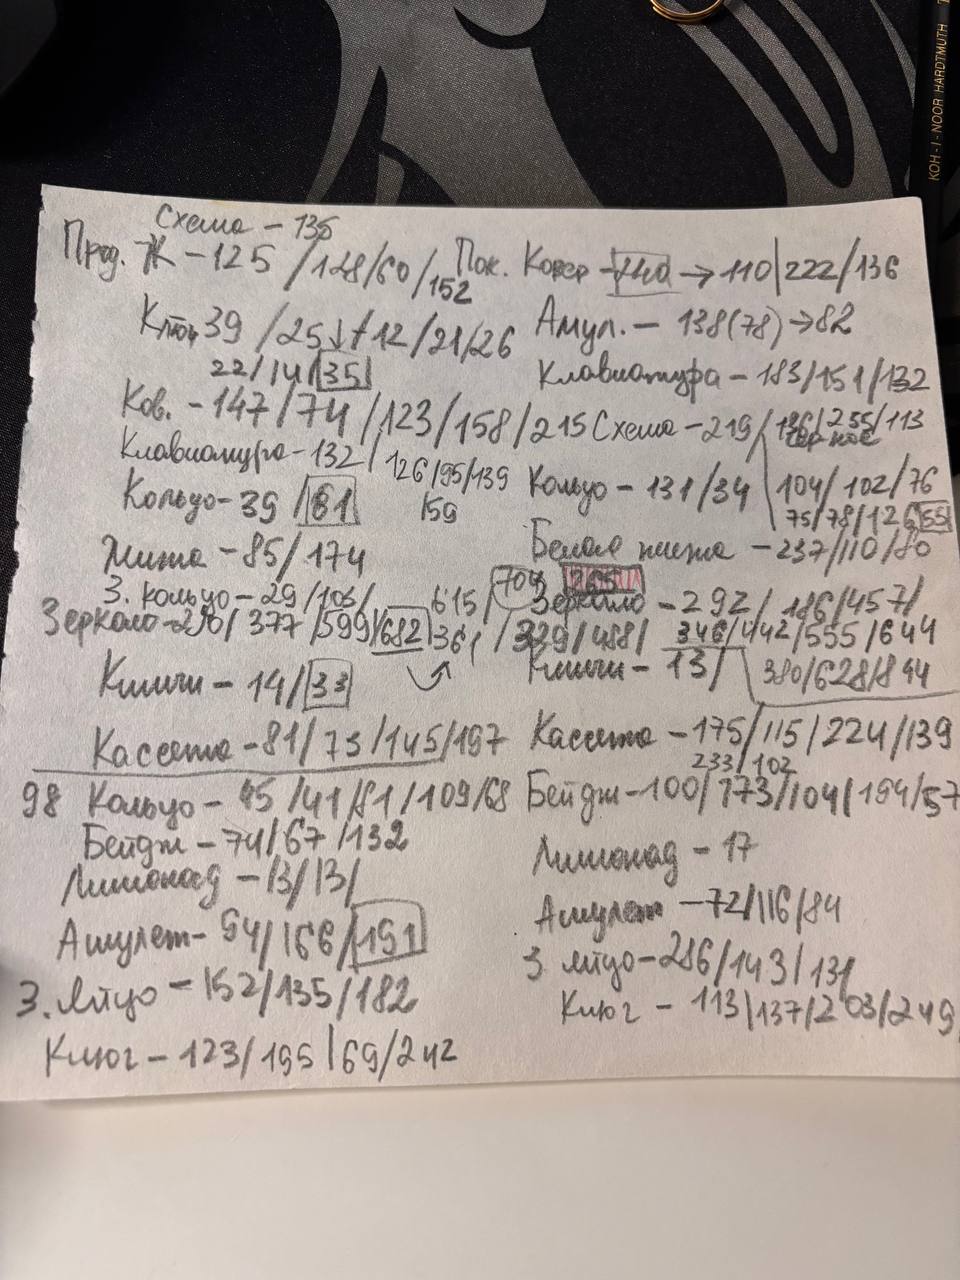 KOH-I-NOOR HARDTMUTH
Схема - 135
Прод. Ж - 125 / 128/60/152
Пок. Ковер → 110|222/136
Ключ 39 /25↓/12/21/26
22/14/35
Амул. - 138(78)→82
Клавиатура - 183/151/132
Ков. - 147/74/123/158/215
Схема - 219/136/255/113
черное
Клавиатура - 132/126/95/139
159
104/102/76
75/78/126 55
Кольцо - 39 /61
Кольцо - 131/34
85/174
Белая - 237/110/80
З. кольцо - 29/103/
615/704
Зеркало - 292/186/457/
Зеркало - 377/599/682 361/329/488/346/442/555/644
380/628/844
Книги - 14/33
Книги - 13/
Кассета - 81/73/145/197
Кассета - 175/115/224/139
233/102
98 Кольцо - 45/41/81/109/68
Бейдж - 100/173/104/194/57
Бейдж - 74/67/132
Лимонад - 17
Лимонад - 13/13/
Амулет - 72/116/84
Амулет - 94/166/191
З. яйцо - 286/143/131
З. яйцо - 152/135/182
Ключ - 113|137/203/249
Ключ - 123/195/69/242